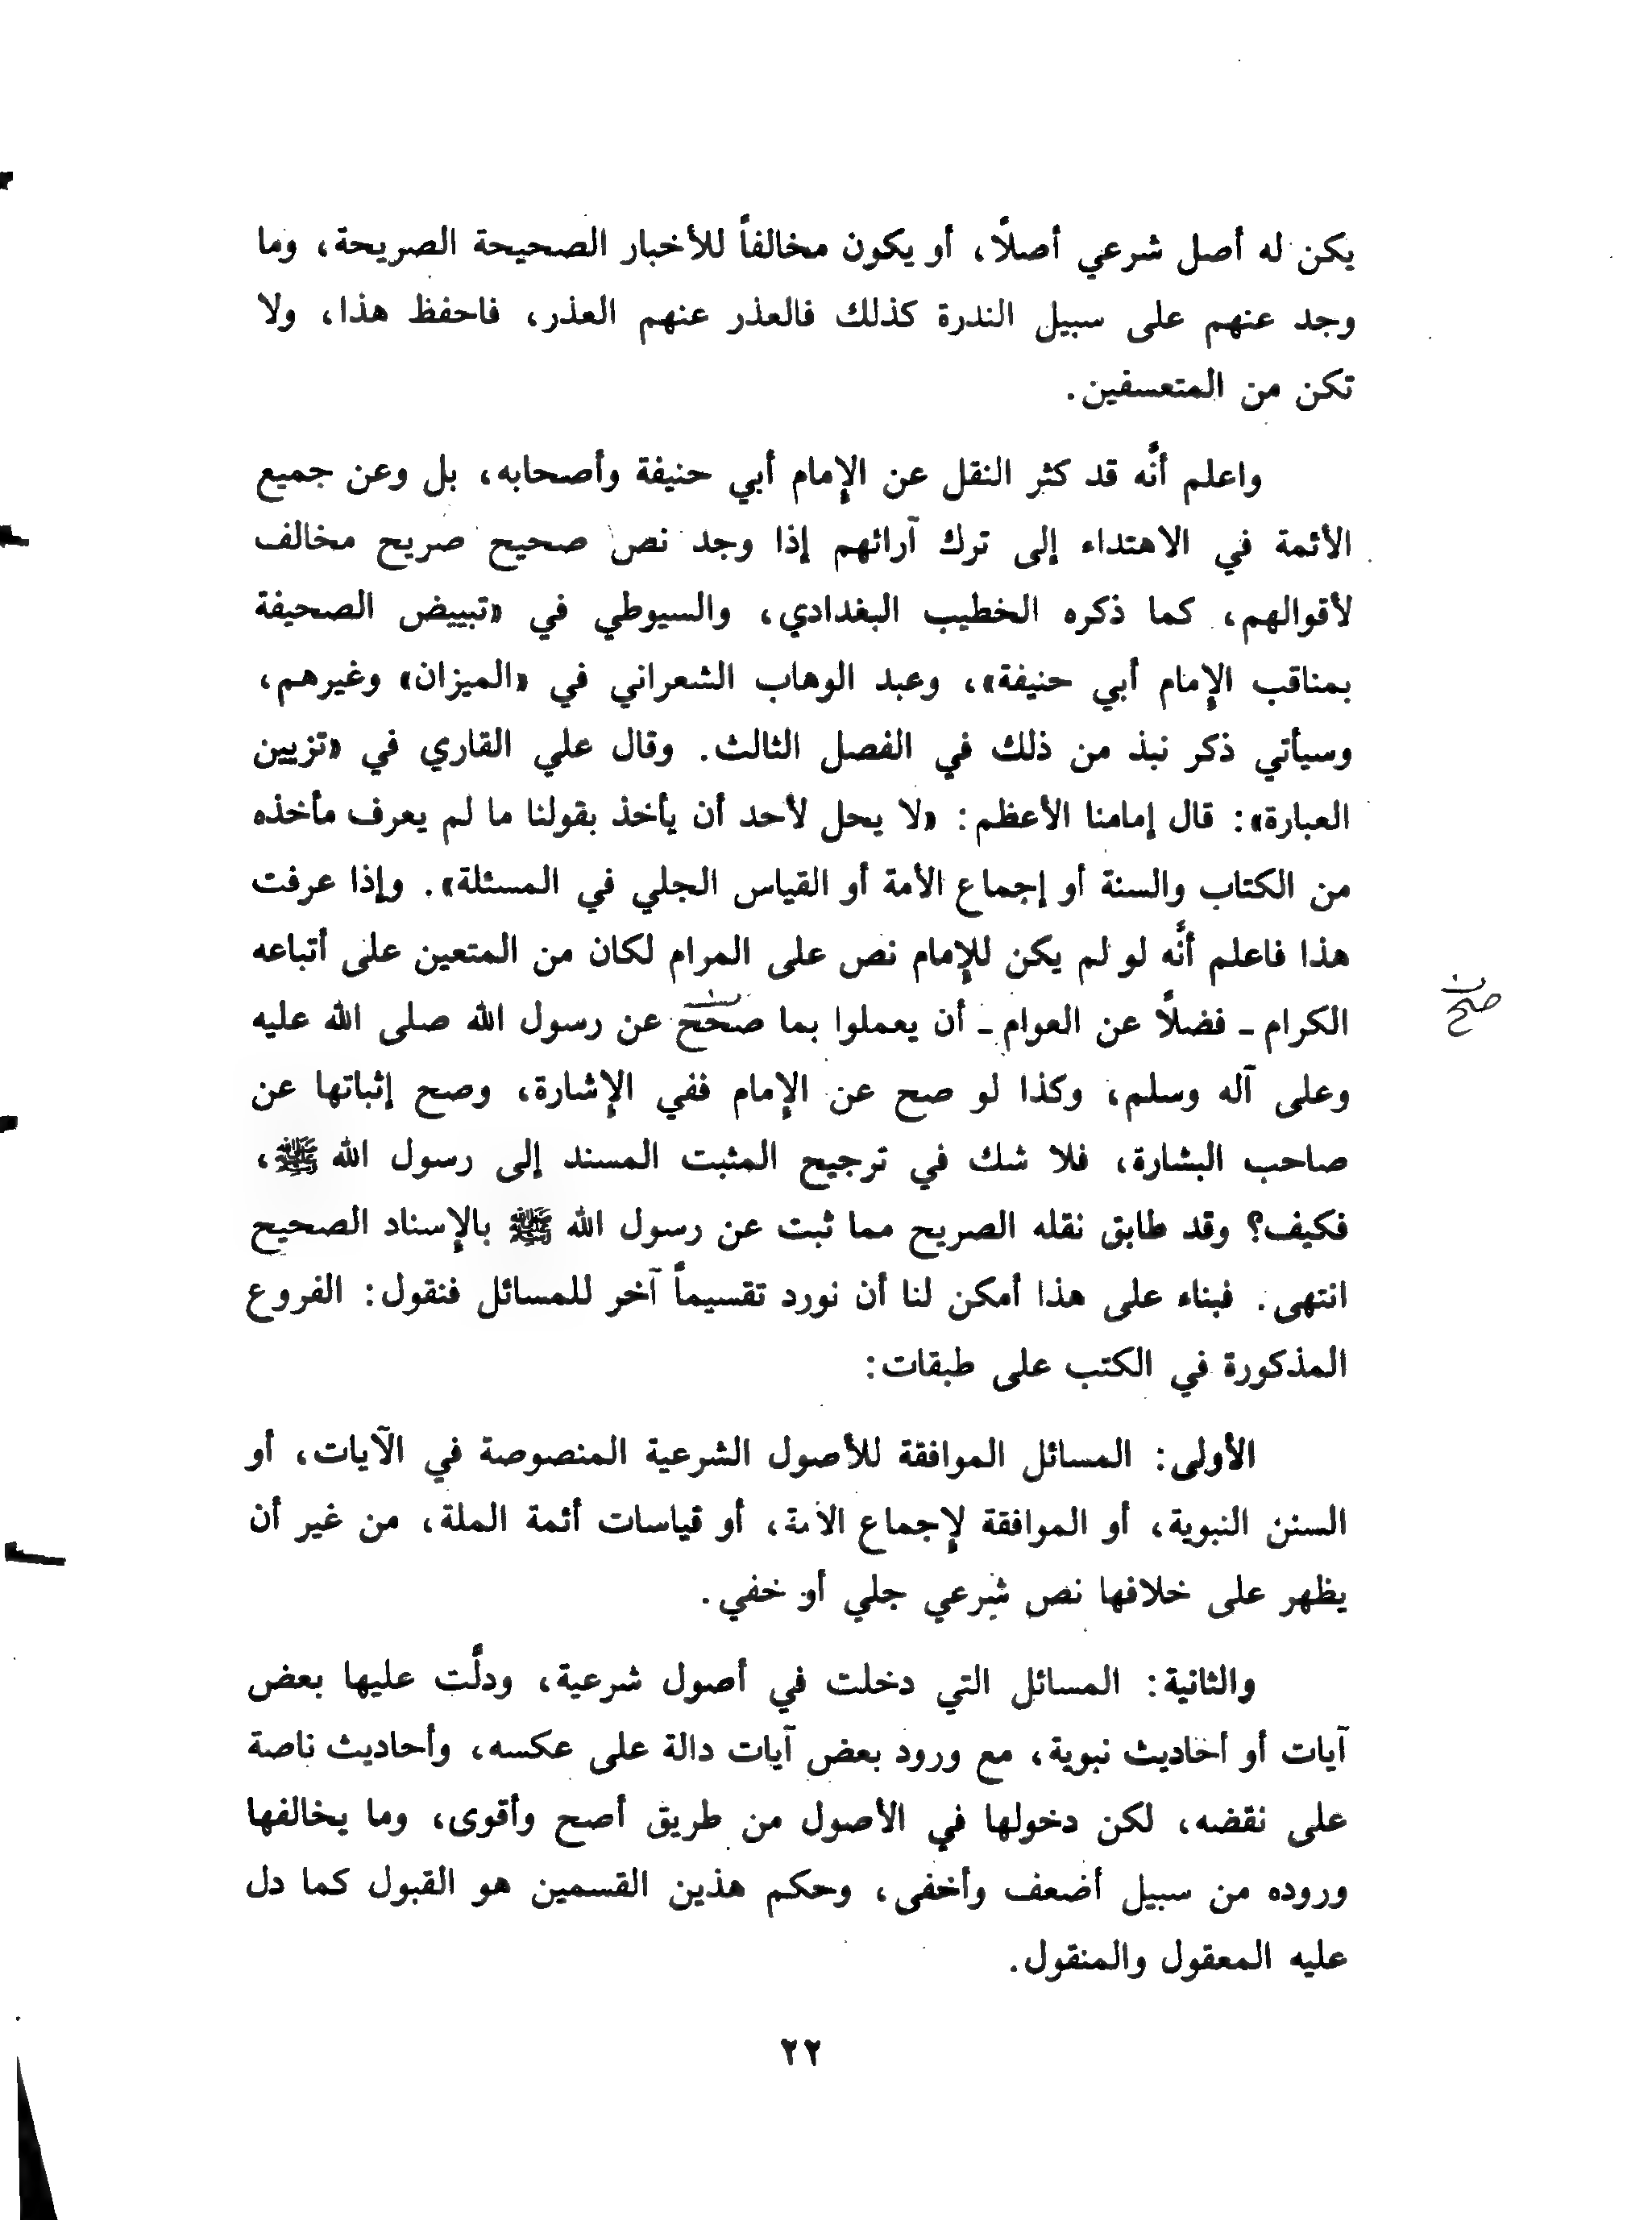 يكن له أصل شرعي أصلًا، أو يكون مخالفاً للأخبار الصحيحة الصريحة، وما
وجد عنهم على سبيل الندرة كذلك فالعذر عنهم العذر، فاحفظ هذا، ولا
تكن من المتعسفين.
واعلم أنَّه قد كثر النقل عن الإمام أبي حنيفة وأصحابه، بل وعن جميع
الأئمة في الاهتداء إلى ترك آرائهم إذا وجد نص صحيح صريح مخالف
لأقوالهم، كما ذكره الخطيب البغدادي، والسيوطي في «تبييض الصحيفة
بمناقب الإمام أبي حنيفة»، وعبد الوهاب الشعراني في «الميزان» وغيرهم،
وسيأتي ذكر نبذ من ذلك في الفصل الثالث. وقال علي القاري في «تزيين
العبارة»: قال إمامنا الأعظم: «لا يحل لأحد أن يأخذ بقولنا ما لم يعرف مأخذه
من الكتاب والسنة أو إجماع الأمة أو القياس الجلي في المسئلة». وإذا عرفت
هذا فاعلم أنَّه لو لم يكن للإمام نص على المرام لكان من المتعين على أتباعه
الكرام ـ فضلًا عن العوام ـ أن يعملوا بما صحح عن رسول الله صلى الله عليه
صح
وعلى آله وسلم، وكذا لو صح عن الإمام ففي الإشارة، وصح إثباتها عن
صاحب البشارة، فلا شك في ترجيح المثبت المسند إلى رسول الله ﷺ،
فكيف؟ وقد طابق نقله الصريح مما ثبت عن رسول الله ﷺ بالإسناد الصحيح
انتهى. فبناء على هذا أمكن لنا أن نورد تقسيماً آخر للمسائل فنقول: الفروع
المذكورة في الكتب على طبقات:
الأولى: المسائل الموافقة للأصول الشرعية المنصوصة في الآيات، أو
السنن النبوية، أو الموافقة لإجماع الأمة، أو قياسات أئمة الملة، من غير أن
يظهر على خلافها نص شرعي جلي أو خفي.
والثانية: المسائل التي دخلت في أصول شرعية، ودلَّت عليها بعض
آيات أو أحاديث نبوية، مع ورود بعض آيات دالة على عكسه، وأحاديث ناصة
على نقضه، لكن دخولها في الأصول من طريق أصح وأقوى، وما يخالفها
وروده من سبيل أضعف وأخفى، وحكم هذين القسمين هو القبول كما دل
عليه المعقول والمنقول.
٢٢